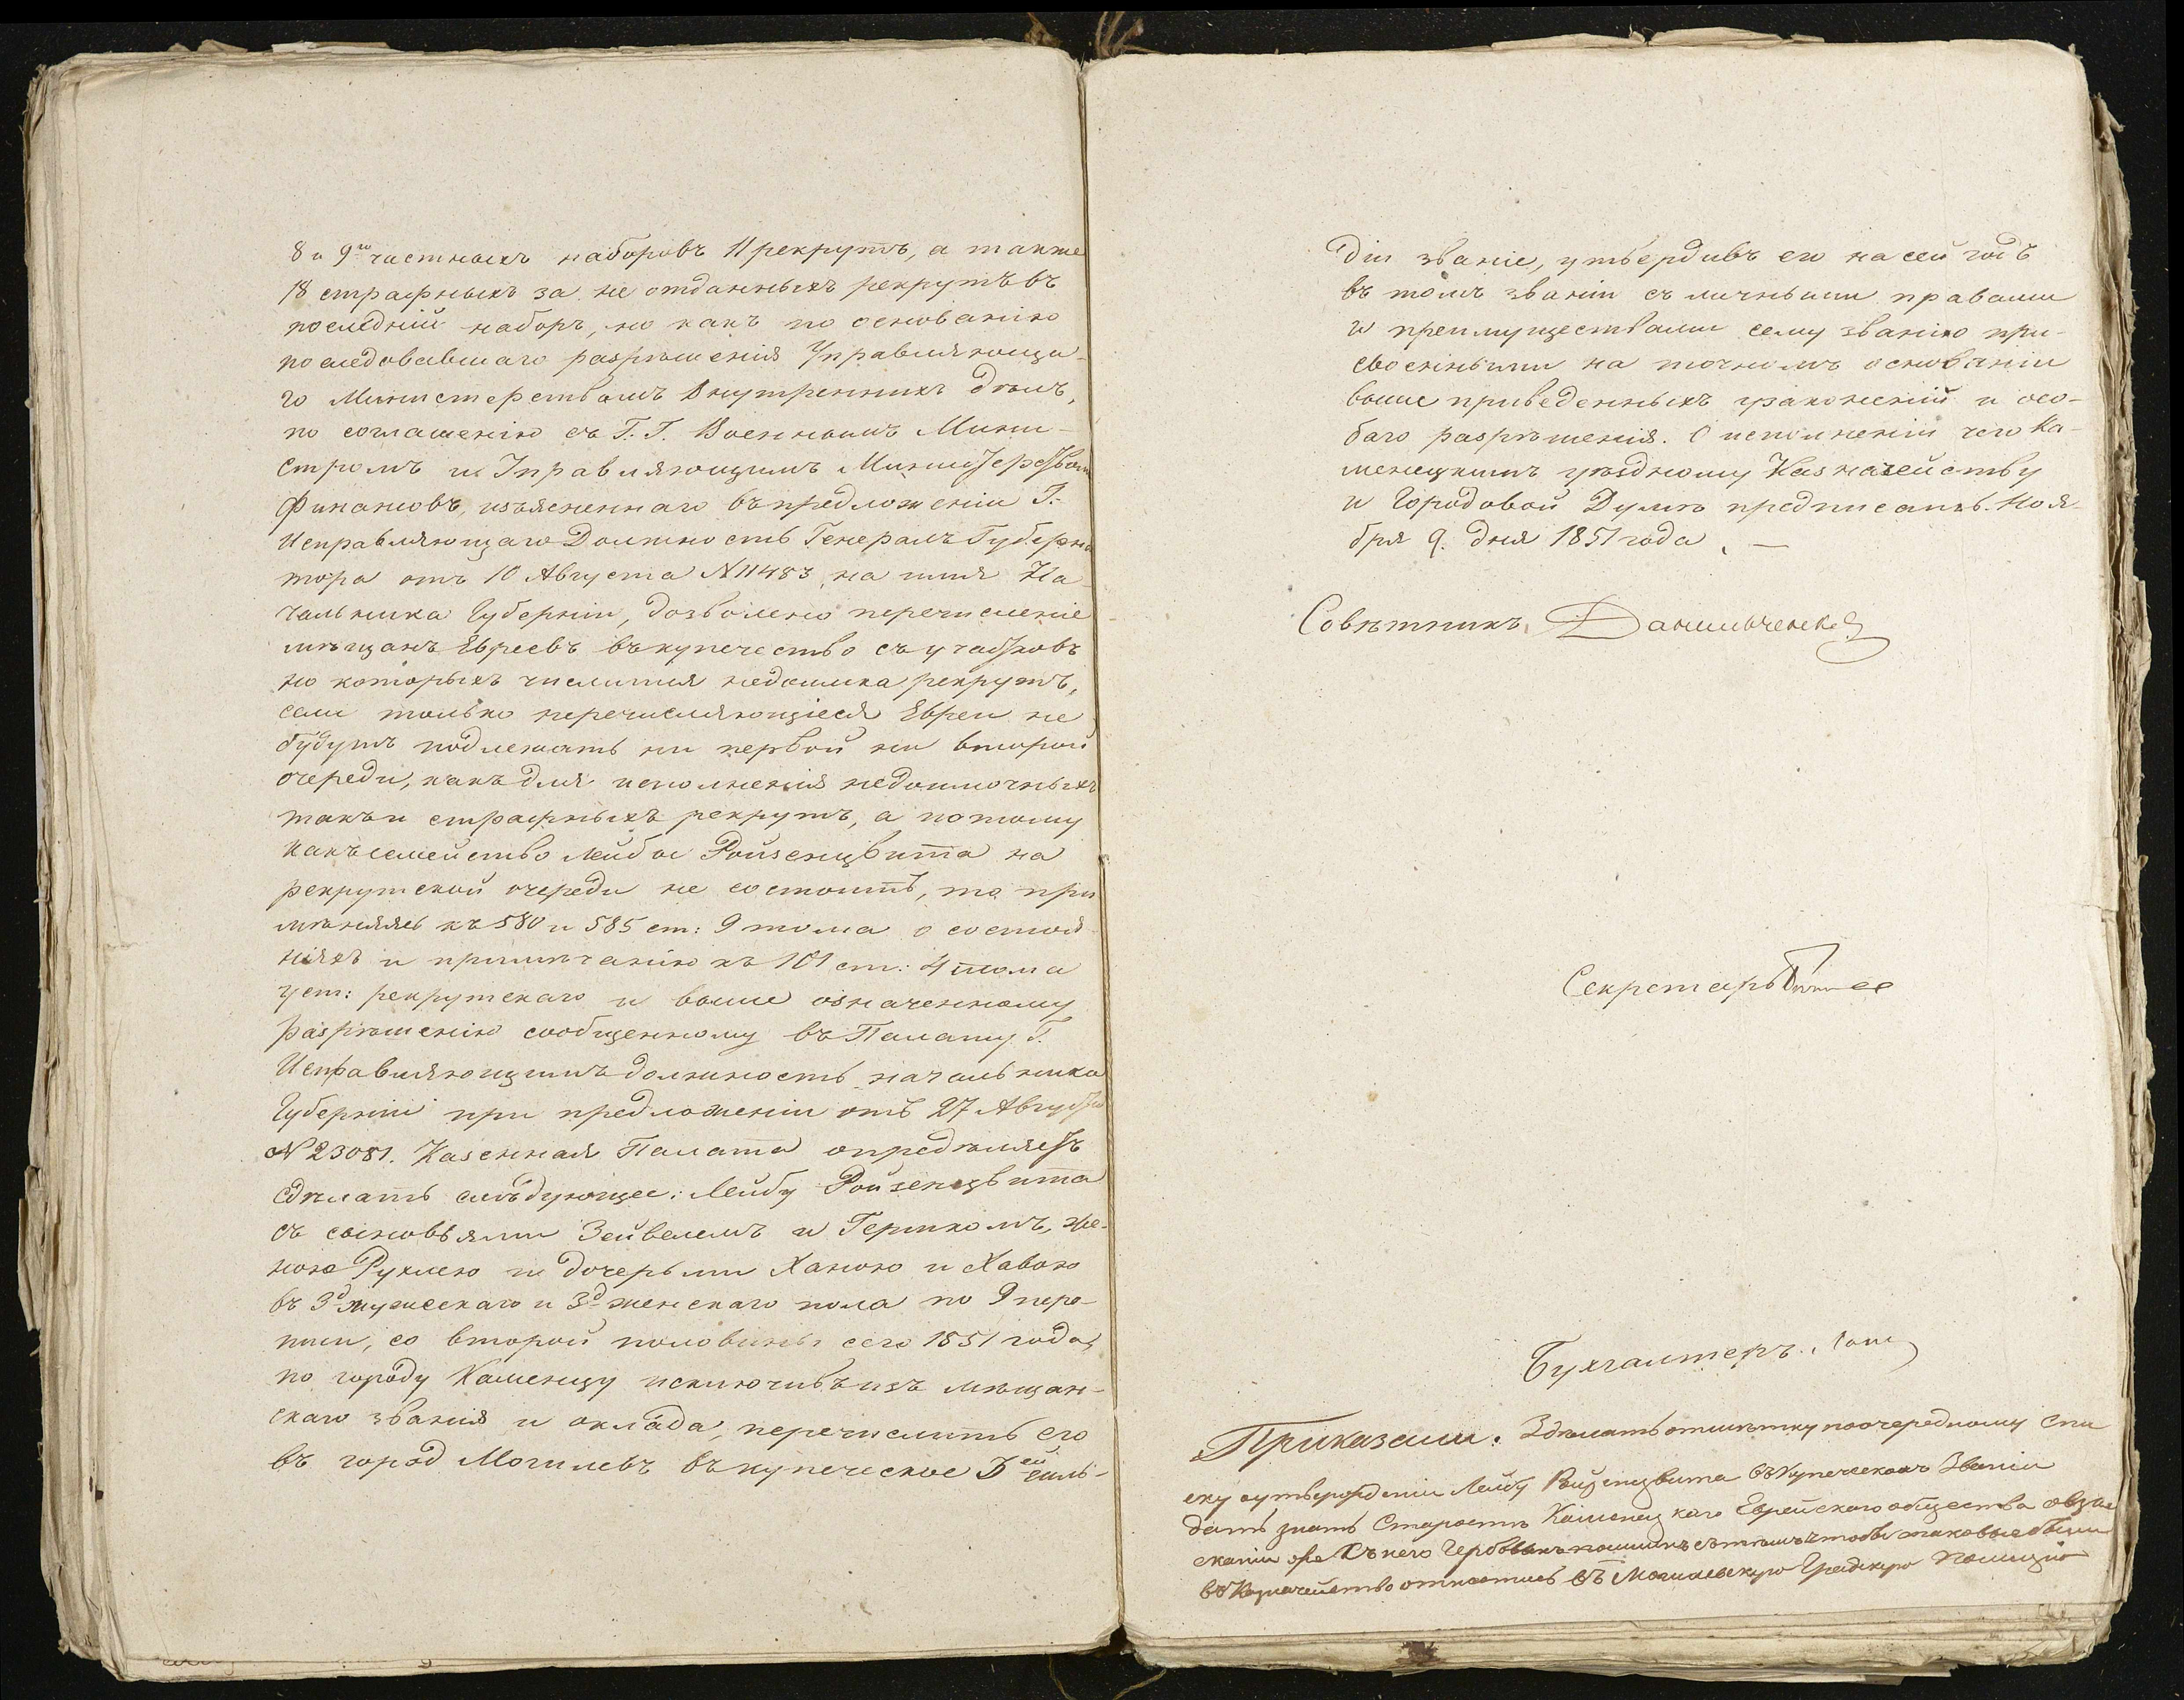 8 и 9го частныхъ наборовъ 11 рекрутъ, а также
18 страфныхъ за не отданныхъ рекрутъ въ
последній наборъ, но какъ по основанію
последовавшаго разрѣшенія Управляюща-
го Министерствомъ Внутреннихъ дѣлъ,
по соглашенію съ Г. Г. Военнымъ Мини-
стромъ и Управляющимъ Министерствомъ
Финансовъ, изъясненнаго въ предложеніи Г.
Исправляющаго Должность Генералъ Губерна
тора отъ 10 Августа N 11483, на имя На-
чальника Губерніи, дозволено перечисленіе
мѣщанъ Евреевъ въ купечество съ участковъ
по которыхъ числится недоимка рекрутъ,
если только перечисляющіеся Евреи не
будутъ подлежать ни первой ни второй
очереди, какъ для исполненія недоимочныхъ
такъ и страфныхъ рекрутъ, а потому
какъ семейство Лейбы Ройзенцвита на
рекрутской очереди не состоитъ, то при
мѣняясь къ 580 и 585 ст: 9 тома о состоя
ніяхъ и примѣчанію къ 101 ст: 4 тома
уст: рекрутскаго и выше означенному
разрѣшенію сообщенному въ Палату Г.
Исправляющимъ должность начальника
Губерніи при предложеніи отъ 27 Августа
N 23081. Казенная Палата опредѣляетъ
сдѣлать слѣдующее: Лейбу Ройзенцвита
съ сыновьями Зейвелемъ и Гершкомъ, же-
ною Рухлею и дочерьми Ханою и Хавою
въ 3д мужескаго и 3д женскаго пола по 9 пере-
писи, со второй половины сего 1851 года,
по городу Каменцу исключивъ изъ мѣщан-
скаго званія и оклада, перечислить его
въ город Могилевъ въ купеческое 3ей Гиль-
діи званіе, утвердивъ его на сей годъ
въ томъ званіи съ личными правами
и преимуществами сему званію при-
своенными на точномъ основаніи
выше приведенныхъ узаконеній и осо-
баго разрѣшенія. О исполненіи чего Ка-
менецкимъ уѣздному Казначейству
и Городовой Думѣ предписать. Ноя-
бря 9. дня 1851 года. —
Совѣтникъ Данильченко
Секретарь
Бухгалтеръ
Приказали. Здѣлать отмѣтку по очередному Спи
ску о утвержденіи Лейбу Ройзенцвита въ Купеческомъ Званіи
дать знать Старостѣ Каменецкаго Еврейскаго общества о взы
сканіи съ него Гербовыхъ пошлинъ съ тѣмъ чтобы таковые были
въ Казначейство отнестись въ Могилевскую Градскую Полицію